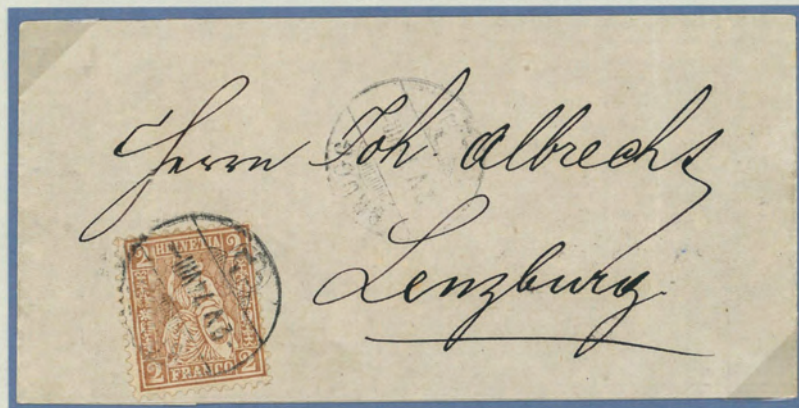 Herrn Joh. Albrecht
Lenzburg
2 HELVETIA 2
2 FRANCO 2
BRUGG